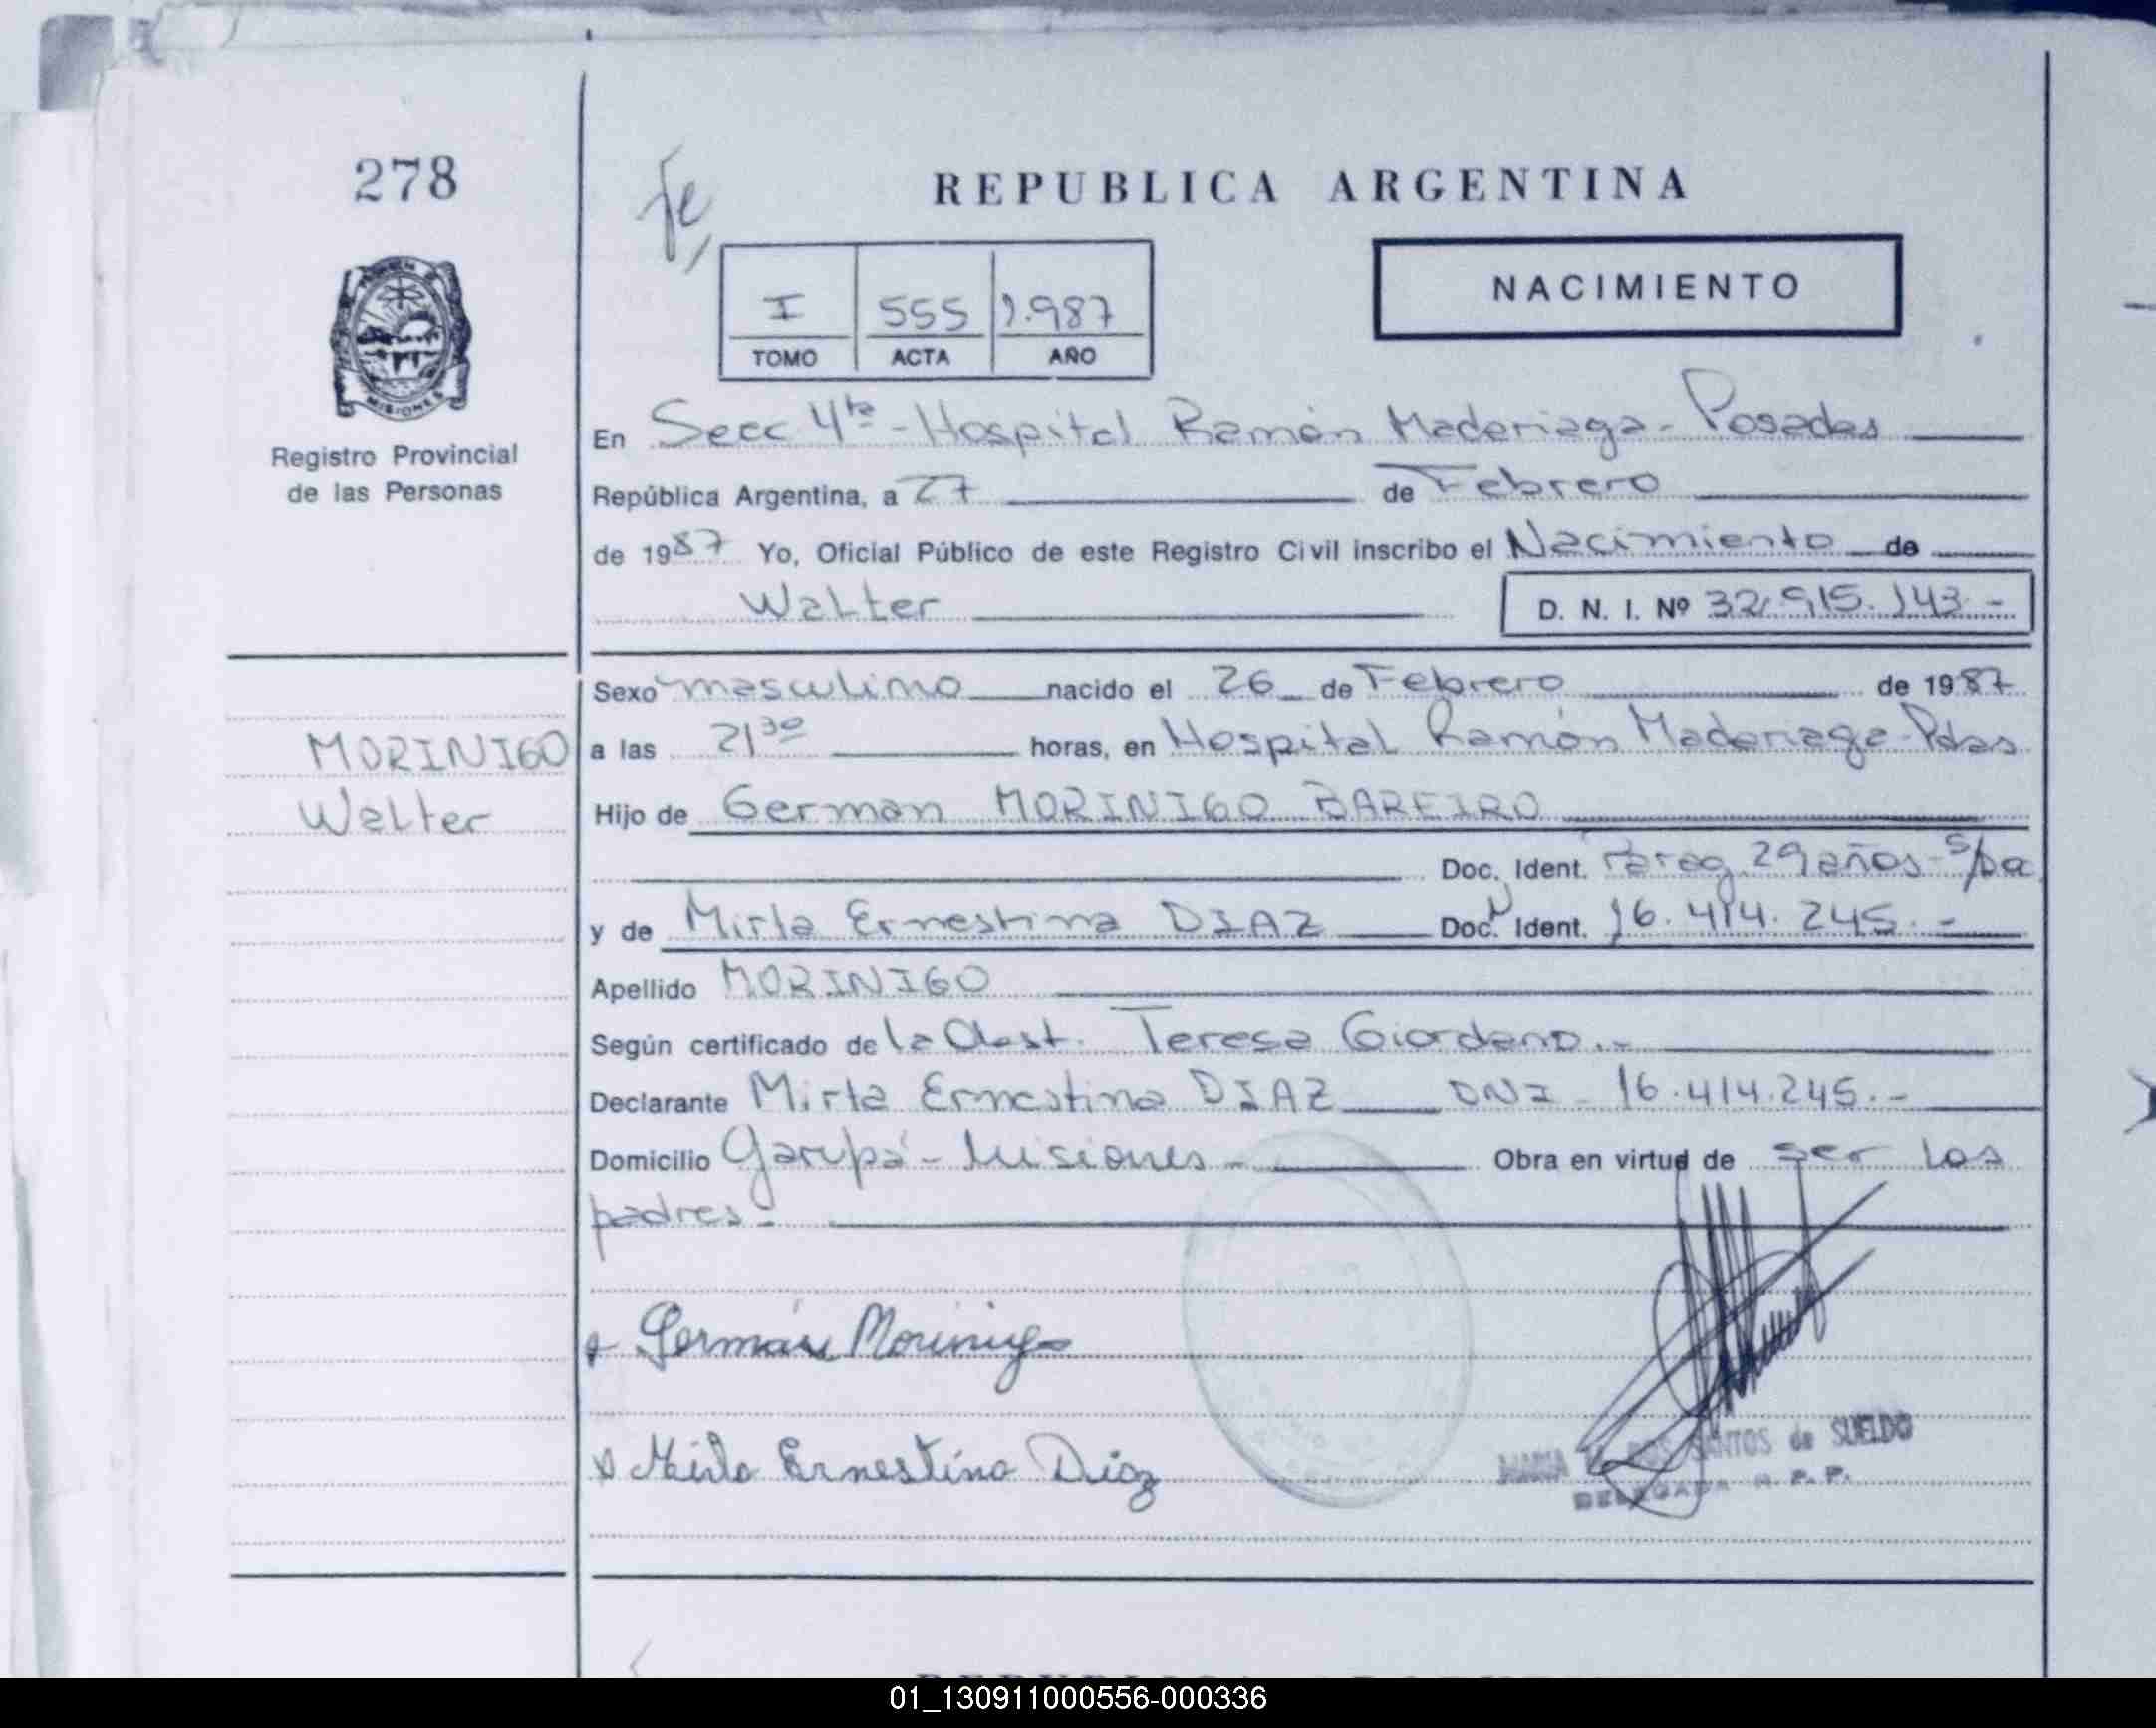 278
fe,
REPUBLICA ARGENTINA
NACIMIENTO
I 555 1.987
TOMO ACTA AÑO
MISIONES
Registro Provincial
de las Personas
En Secc 4ta - Hospital Ramón Madariaga - Posadas
República Argentina, a 27 de Febrero
de 1987 Yo, Oficial Público de este Registro Civil inscribo el Nacimiento de
Walter D. N. I. Nº 32.915.143 -
Sexo masculino nacido el 26 de Febrero de 1987
MORINIGO
Walter
a las 21 30 horas, en Hospital Ramón Madariaga - Pdas
Hijo de German MORINIGO BAREIRO
Doc. Ident. Parag. 29 años - s/
y de Mirta Ernestina DIAZ Doc. N Ident. 16.414.245.-
Apellido MORINIGO
Según certificado de la Obst. Teresa Giordano.-
Declarante Mirta Ernestina DIAZ DNI - 16.414.245.-
Domicilio Garupá - Misiones - Obra en virtud de ser los
padres -
Germán Morinigo
Mirta Ernestina Diaz
MARIA DOS SANTOS de SUELDO
DELEGADA R. P. P.
01_130911000556-000336